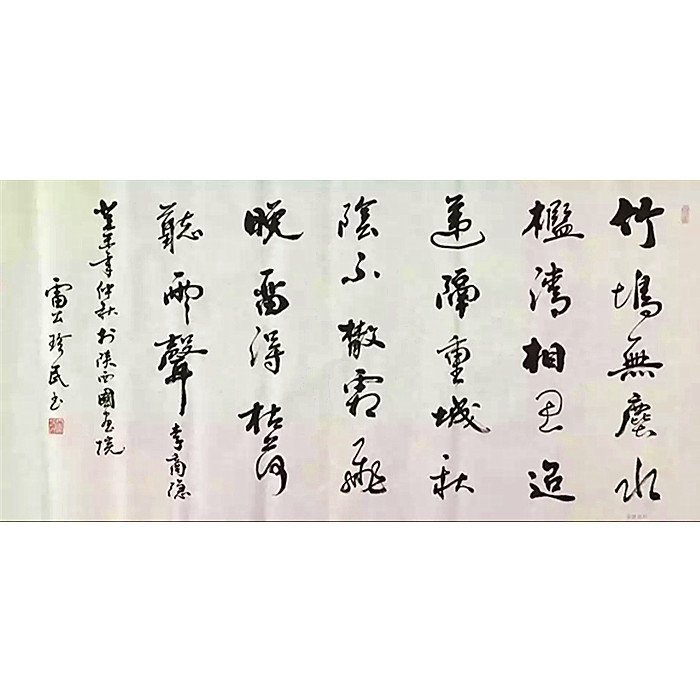 竹塢無塵水
檻清相思迢
遞隔重城秋
陰不散霜飛
晚留得枯荷
聽雨聲 李商隱
癸未年仲秋於陝西國畫院
雷珍民書